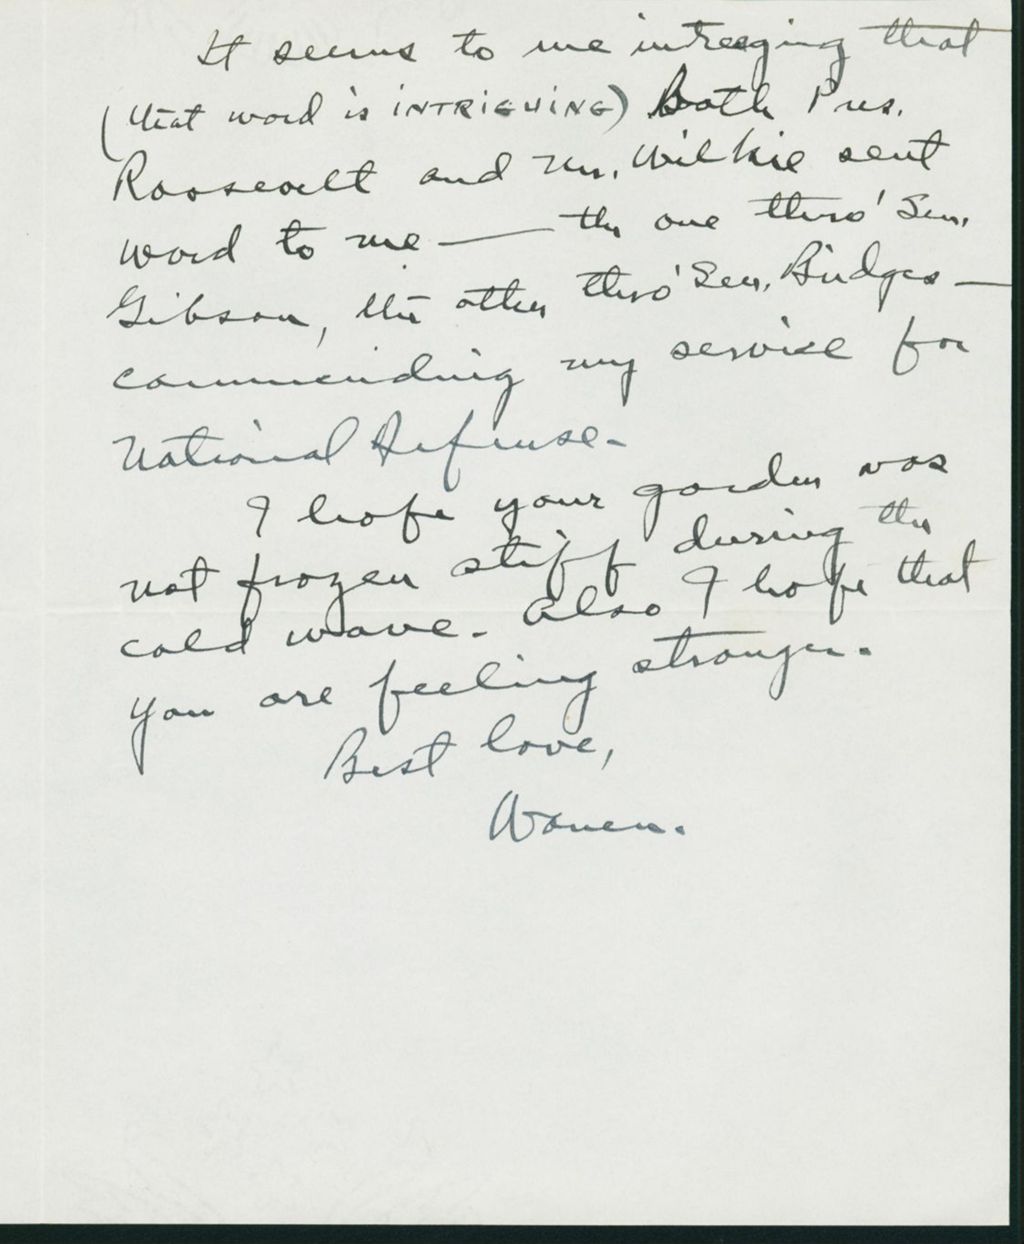 It seems to me intreeging that
(that word is INTRIGUING) Both Pres.
Roosevelt and Mr. Wilkie sent
word to me — the one thro' Sen.
Gibson, the other thro' Sen. Bridges —
commending my service for
National Defense.
I hope your garden was
not frozen stiff during the
cold wave. Also I hope that
you are feeling stronger.
Best love,
Warren.